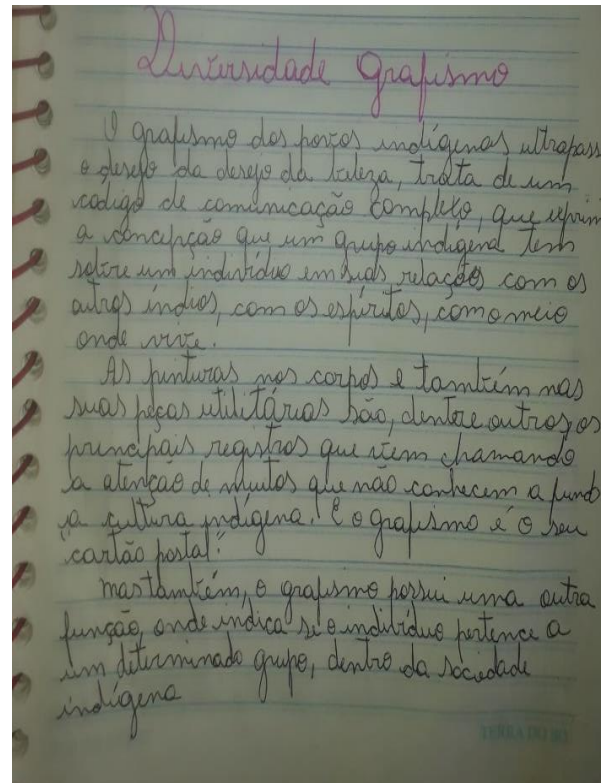 Diversidade grafismo
O grafismo dos povos indígenas ultrapass
o desejo da desejo da beleza, trata de um
código de comunicação complexo, que exprim
a concepção que um grupo indígena tem
sobre um indivíduo em suas relações com os
outros índios, com os espíritos, com o meio
onde vive.
As pinturas nos corpos e também nas
suas peças utilitárias são, dentre outros, os
principais registros que vem chamando
a atenção de muitos que não conhecem a fundo
a cultura indígena. E o grafismo é o seu
"cartão postal".
mas também, o grafismo possui uma outra
função, onde indica se o indivíduo pertence a
um determinado grupo, dentro da sociedade
indígena